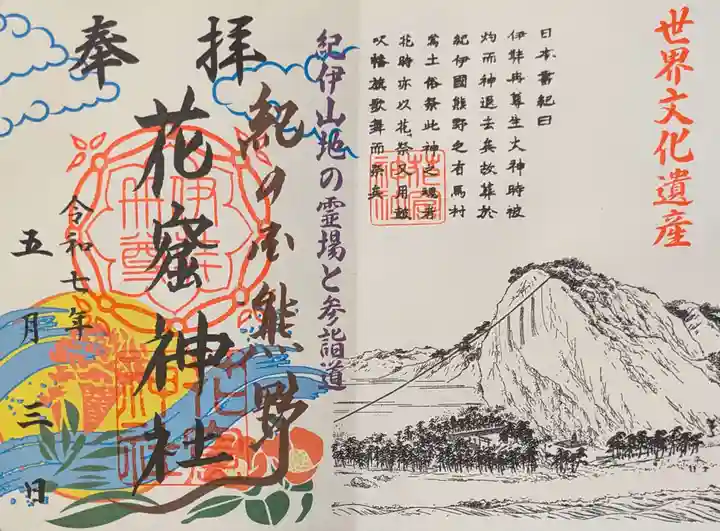 世界文化遺産
日本書紀曰
伊弉冉尊生火神時被
灼而神退去矣故葬於
紀伊國熊野之有馬村
焉土俗祭此神之魂者
花時亦以花祭又用鼓
吹幡旗歌舞而祭矣
紀伊山地の霊場と参詣道
奉拝
紀の国熊野
花窟神社
令和七年
五月三日